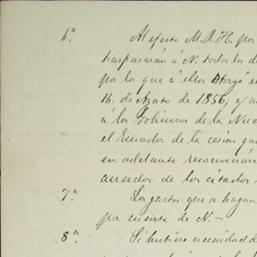 6ª Al efecto M. A. H. por
traspasarán á N. todos los d
por la que á ellos otorgó en
16 de Agosto de 1856, y a
á los Gobiernos de la Nue
el Ecuador de la cesion que
en adelante reconocerán
acreedor de los citados
7ª Los gastos que se hagan
por cuenta de N—
8ª Si hubiere necesidad d